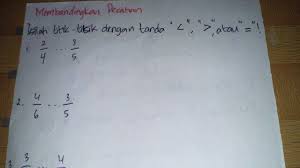 Membandingkan Pecahan
Isilah titik-titik dengan tanda "<", ">", atau "="!
1. 2/4 ... 3/5
2. 4/6 ... 3/5
3. 3 4